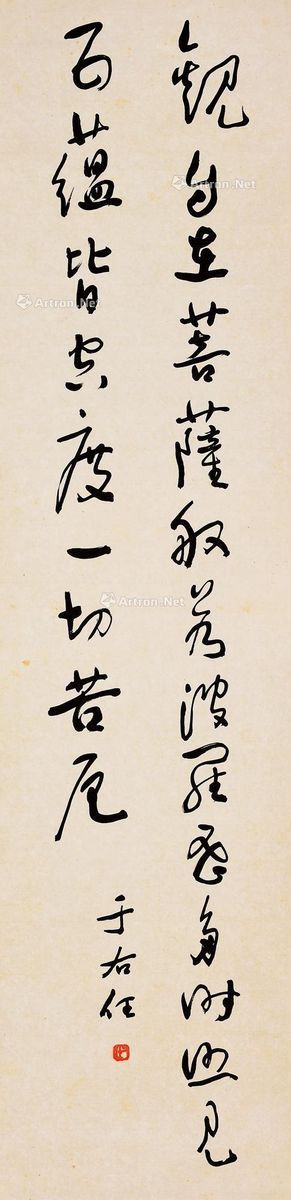 觀自在菩薩般若波羅蜜多時照見
五蘊皆空度一切苦厄
于右任
Artron.Net
Artron.Net
Artron.Net